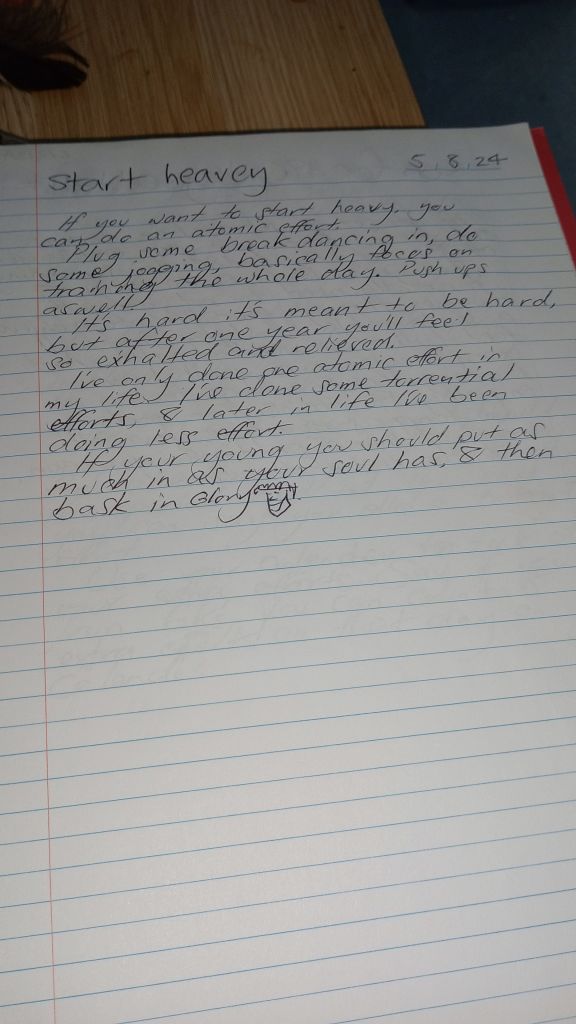 5.8.24
Start heavey
If you want to start heavy, you
can do an atomic effort.
Plug some break dancing in, do
some jogging, basically focos on
training the whole day. Push ups
aswell.
It's hard it's meant to be hard,
but after one year you'll feel
so exhalted and relieved.
I've only done one atomic effort in
my life, I've done some torrential
efforts, & later in life I've been
doing less effort.
If your young you should put as
much in as your soul has, & then
bask in Glory